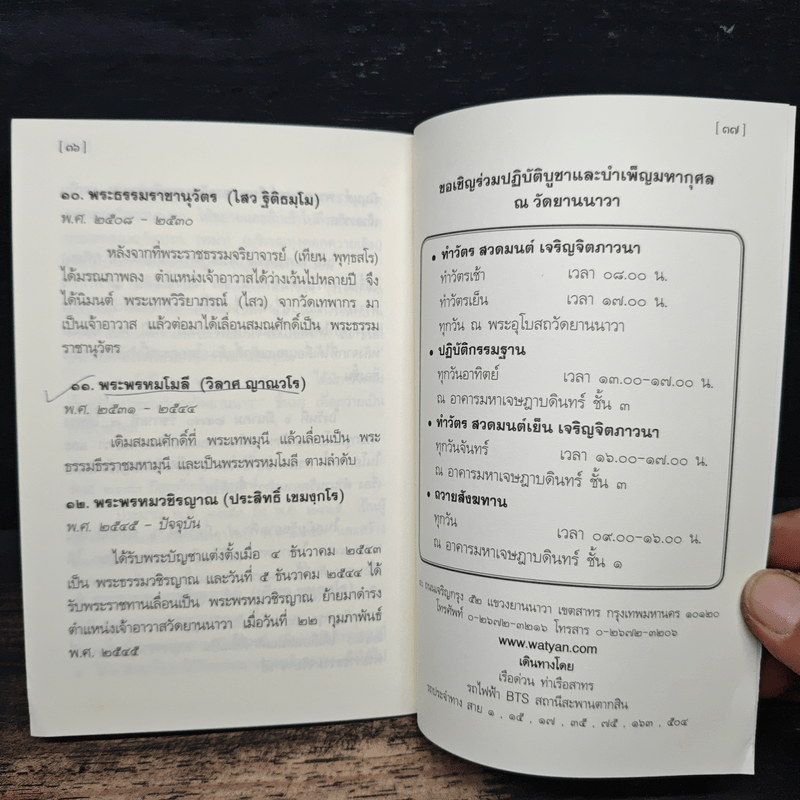 [ ๓๖ ]
๑๐. พระธรรมราชานุวัตร (ไสว ฐิติธมฺโม)
พ.ศ. ๒๕๐๘ - ๒๕๓๐
หลังจากที่พระราชธรรมจริยาจารย์ (เทียน พุทฺธสโร)
ได้มรณภาพลง ตำแหน่งเจ้าอาวาสได้ว่างเว้นไปหลายปี จึง
ได้นิมนต์ พระเทพวิริยาภรณ์ (ไสว) จากวัดเทพากร มา
เป็นเจ้าอาวาส แล้วต่อมาได้เลื่อนสมณศักดิ์เป็น พระธรรม
ราชานุวัตร
๑๑. พระพรหมโมลี (วิลาศ ญาณวโร)
พ.ศ. ๒๕๓๑ - ๒๕๔๔
เดิมสมณศักดิ์ที่ พระเทพมุนี แล้วเลื่อนเป็น พระ
ธรรมธีรราชมหามุนี และเป็นพระพรหมโมลี ตามลำดับ
๑๒. พระพรหมวชิรญาณ (ประสิทธิ์ เขมงฺกโร)
พ.ศ. ๒๕๔๕ - ปัจจุบัน
ได้รับพระบัญชาแต่งตั้งเมื่อ ๔ ธันวาคม ๒๕๔๓
เป็น พระธรรมวชิรญาณ และวันที่ ๕ ธันวาคม ๒๕๔๔ ได้
รับพระราชทานเลื่อนเป็น พระพรหมวชิรญาณ ย้ายมาดำรง
ตำแหน่งเจ้าอาวาสวัดยานนาวา เมื่อวันที่ ๒๒ กุมภาพันธ์
พ.ศ. ๒๕๔๕
[ ๓๗ ]
ขอเชิญร่วมปฏิบัติบูชาและบำเพ็ญมหากุศล
ณ วัดยานนาวา
• ทำวัตร สวดมนต์ เจริญจิตภาวนา
ทำวัตรเช้า เวลา ๐๘.๐๐ น.
ทำวัตรเย็น เวลา ๑๗.๐๐ น.
ทุกวัน ณ พระอุโบสถวัดยานนาวา
• ปฏิบัติกรรมฐาน
ทุกวันอาทิตย์ เวลา ๑๓.๐๐-๑๗.๐๐ น.
ณ อาคารมหาเจษฎาบดินทร์ ชั้น ๓
• ทำวัตร สวดมนต์เย็น เจริญจิตภาวนา
ทุกวันจันทร์ เวลา ๑๖.๐๐-๑๗.๐๐ น.
ณ อาคารมหาเจษฎาบดินทร์ ชั้น ๓
• ถวายสังฆทาน
ทุกวัน
เวลา ๐๙.๐๐-๑๖.๐๐ น.
ณ อาคารมหาเจษฎาบดินทร์ ชั้น ๑
ถนนเจริญกรุง ๕๒ แขวงยานนาวา เขตสาทร กรุงเทพมหานคร ๑๐๑๒๐
โทรศัพท์ ๐-๒๖๗๒-๓๒๑๖ โทรสาร ๐-๒๖๗๒-๓๒๐๖
www.watyan.com
เดินทางโดย
เรือด่วน ท่าเรือสาทร
รถไฟฟ้า BTS สถานีสะพานตากสิน
รถประจำทาง สาย ๑ , ๑๕ , ๑๗ , ๓๕ , ๗๕ , ๑๖๓ , ๕๐๔